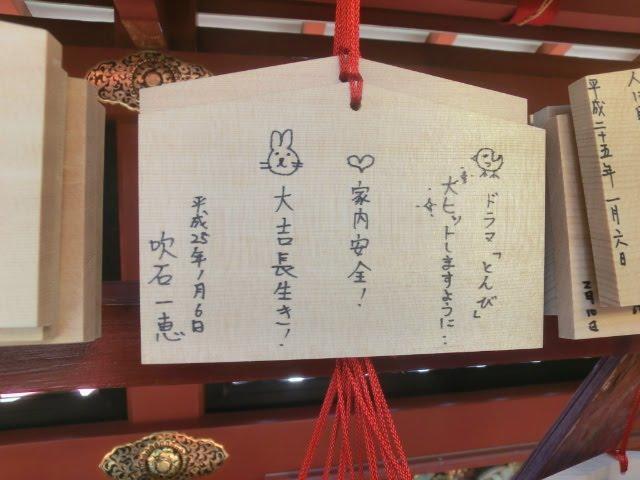 ドラマ「とんび」
大ヒットしますように..
家内安全!
大吉長生き!
平成25年1月6日
吹石一恵
平成二十五年一月六日